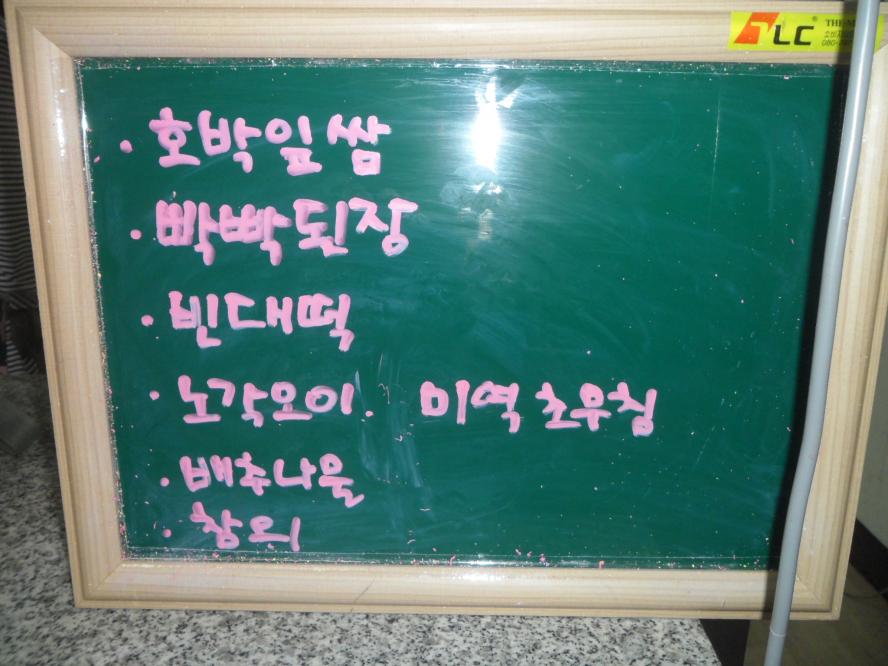 TLC
· 호박잎쌈
· 빡빡된장
· 빈대떡
· 노각오이. 미역초무침
· 배추나물
· 참외